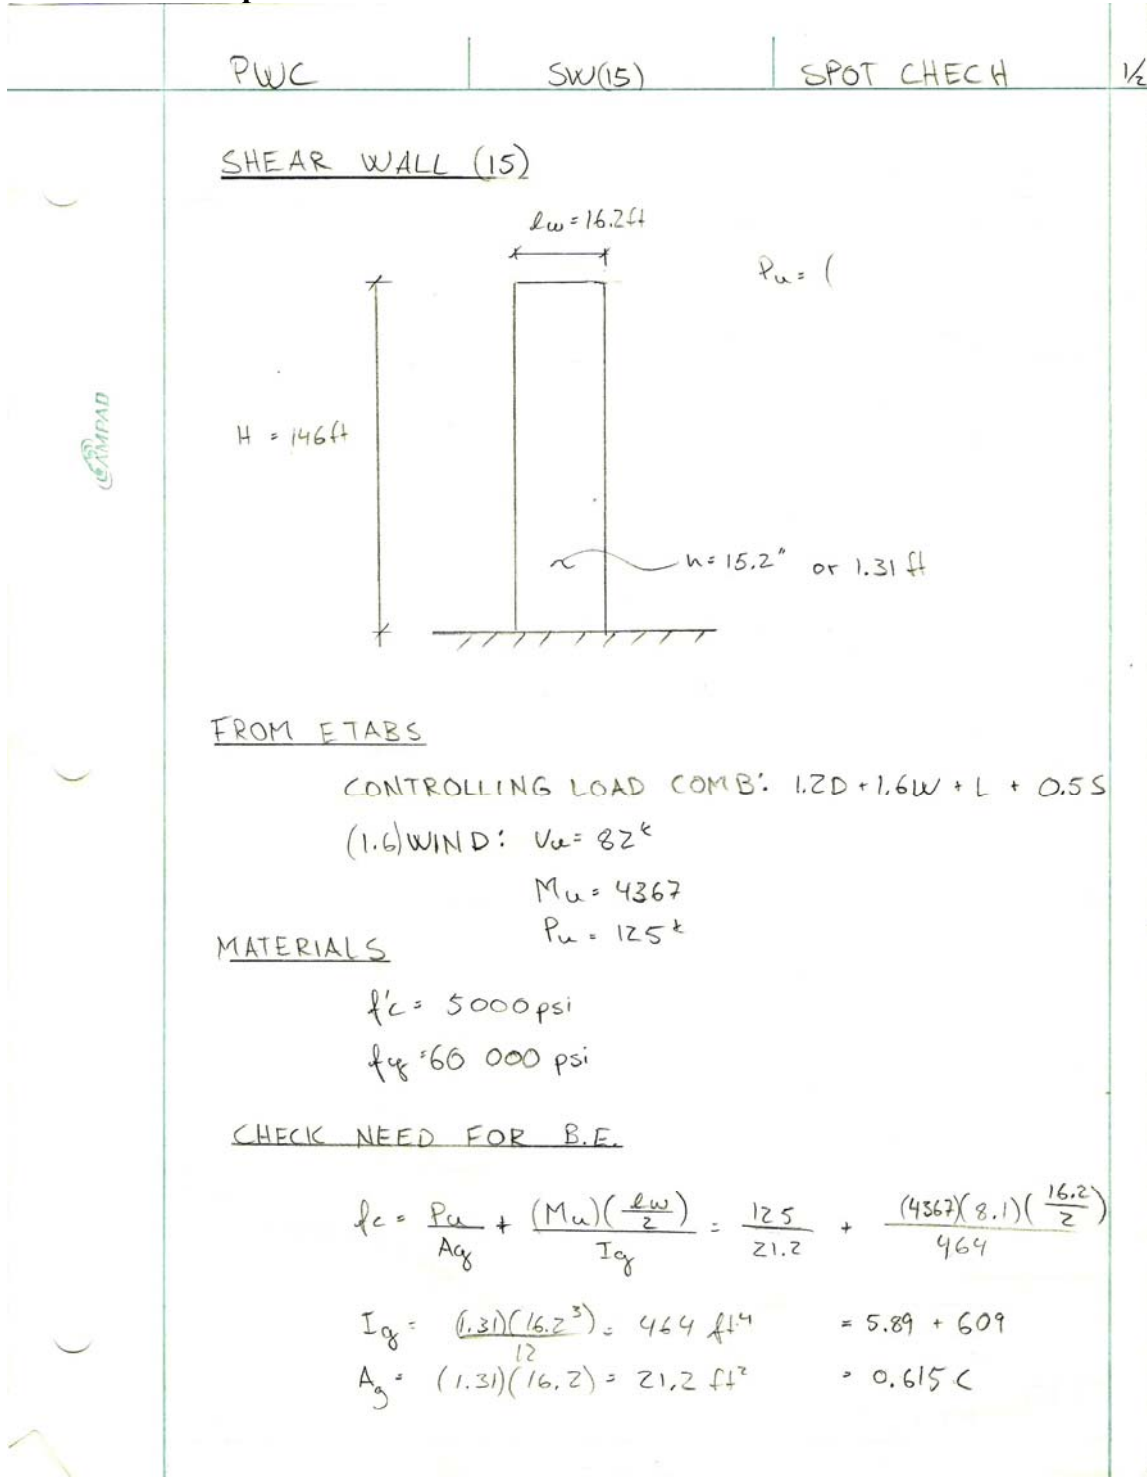 PWC SW(15) SPOT CHECH 1/2
SHEAR WALL (15)
lw = 16.2ft
Pu = (
H = 146ft
AMPAD
h = 15.2" or 1.31 ft
FROM ETABS
CONTROLLING LOAD COMB: 1.2D + 1.6W + L + 0.5S
(1.6)WIND: Vu = 82k
Mu = 4367
Pu = 125k
MATERIALS
f'c = 5000psi
fy = 60 000 psi
CHECK NEED FOR B.E.
fc = Pu/Ag + (Mu)(lw/2)/Ig = 125/21.2 + (4367)(8.1)(16.2/2)/464
Ig = (1.31)(16.2³)/12 = 464 ft⁴ = 5.89 + 609
Ag = (1.31)(16.2) = 21.2 ft² = 0.615 <